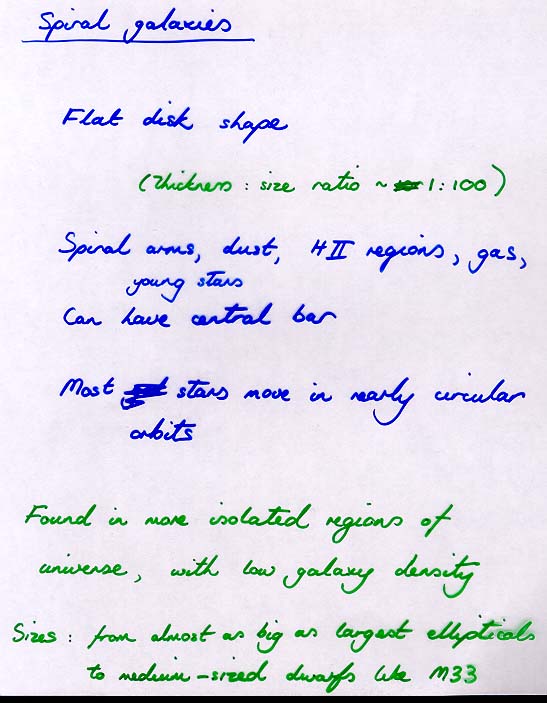 Spiral galaxies
Flat disk shape
(thickness : size ratio ~ 1 : 100)
Spiral arms, dust, H II regions, gas,
young stars
Can have central bar
Most stars move in nearly circular
orbits
Found in more isolated regions of
universe, with low galaxy density
Sizes : from almost as big as largest ellipticals
to medium-sized dwarfs like M33